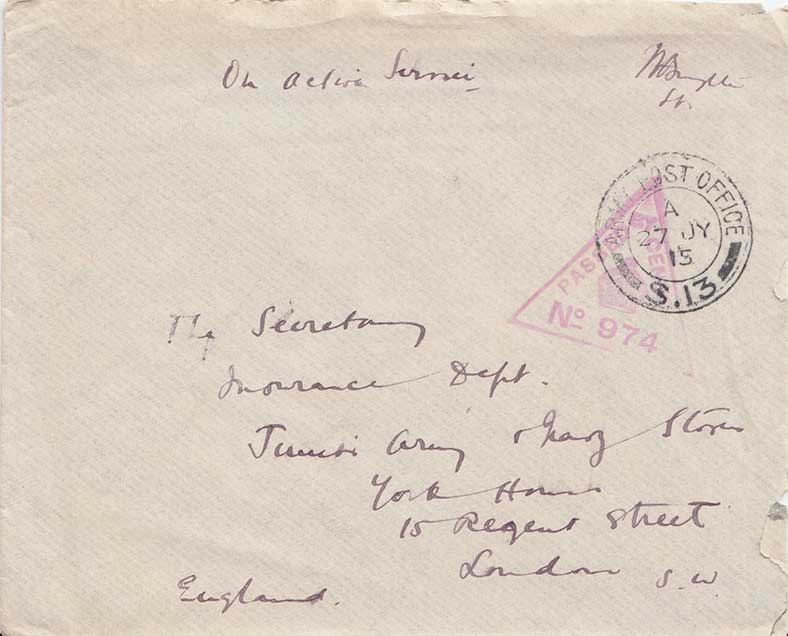 On Active Service
Lt.
ARMY POST OFFICE
A
27 JY
15
S.13
PASSED BY CENSOR
No 974
The Secretary
Insurance Dept.
Junior Army & Navy Stores
York House
15 Regent Street
London S.W.
England.